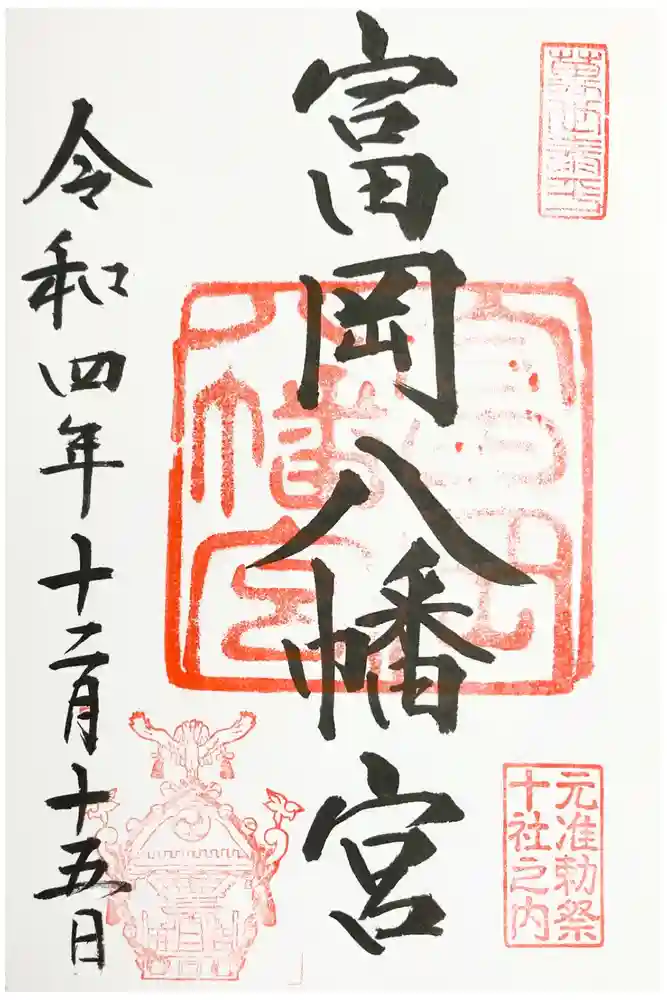 富岡八幡宮
令和四年十二月十五日
元准勅祭
十社之内